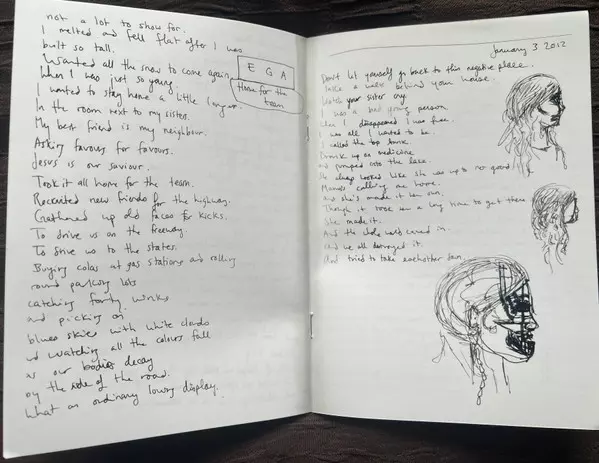 not a lot to show for.
I melted and fell flat after I was
built so tall.
Wanted all the snow to come again
When I was just so young.
I wanted to stay home a little longer.
In the room next to my sister.
My best friend is my neighbour.
Asking favours for favours.
Jesus is our saviour.
Took it all home for the team.
Recruited new friends for the highway.
Gathered up old faces for kicks.
To drive us on the freeway.
To drive us to the states.
Buying colas at gas stations and rolling
round parking lots
catching forty winks
and picking on
blues skies with white clouds
and watching all the colours fall
as our bodies decay
on the side of the road.
What an ordinary lousy display.
E G A
Home for the
team
January 3 2012
Don't let yourself go back to this negative place.
Take a walk behind your house.
Watch your sister cry.
I was a bad young person
When I disappeared I was free.
I was all I wanted to be.
I called the top bunk.
Drunk up on medicine
and jumped into the lake.
She always looked like she was up to no good.
Mama's calling me home.
and she's made it her own.
Though it took her a long time to get there
She made it.
And the whole world caved in.
and we all destroyed it.
And tried to take eachother down.